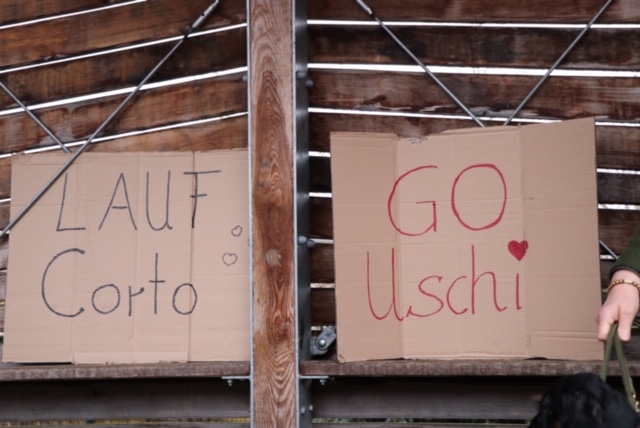 LAUF
Corto
GO
Uschi